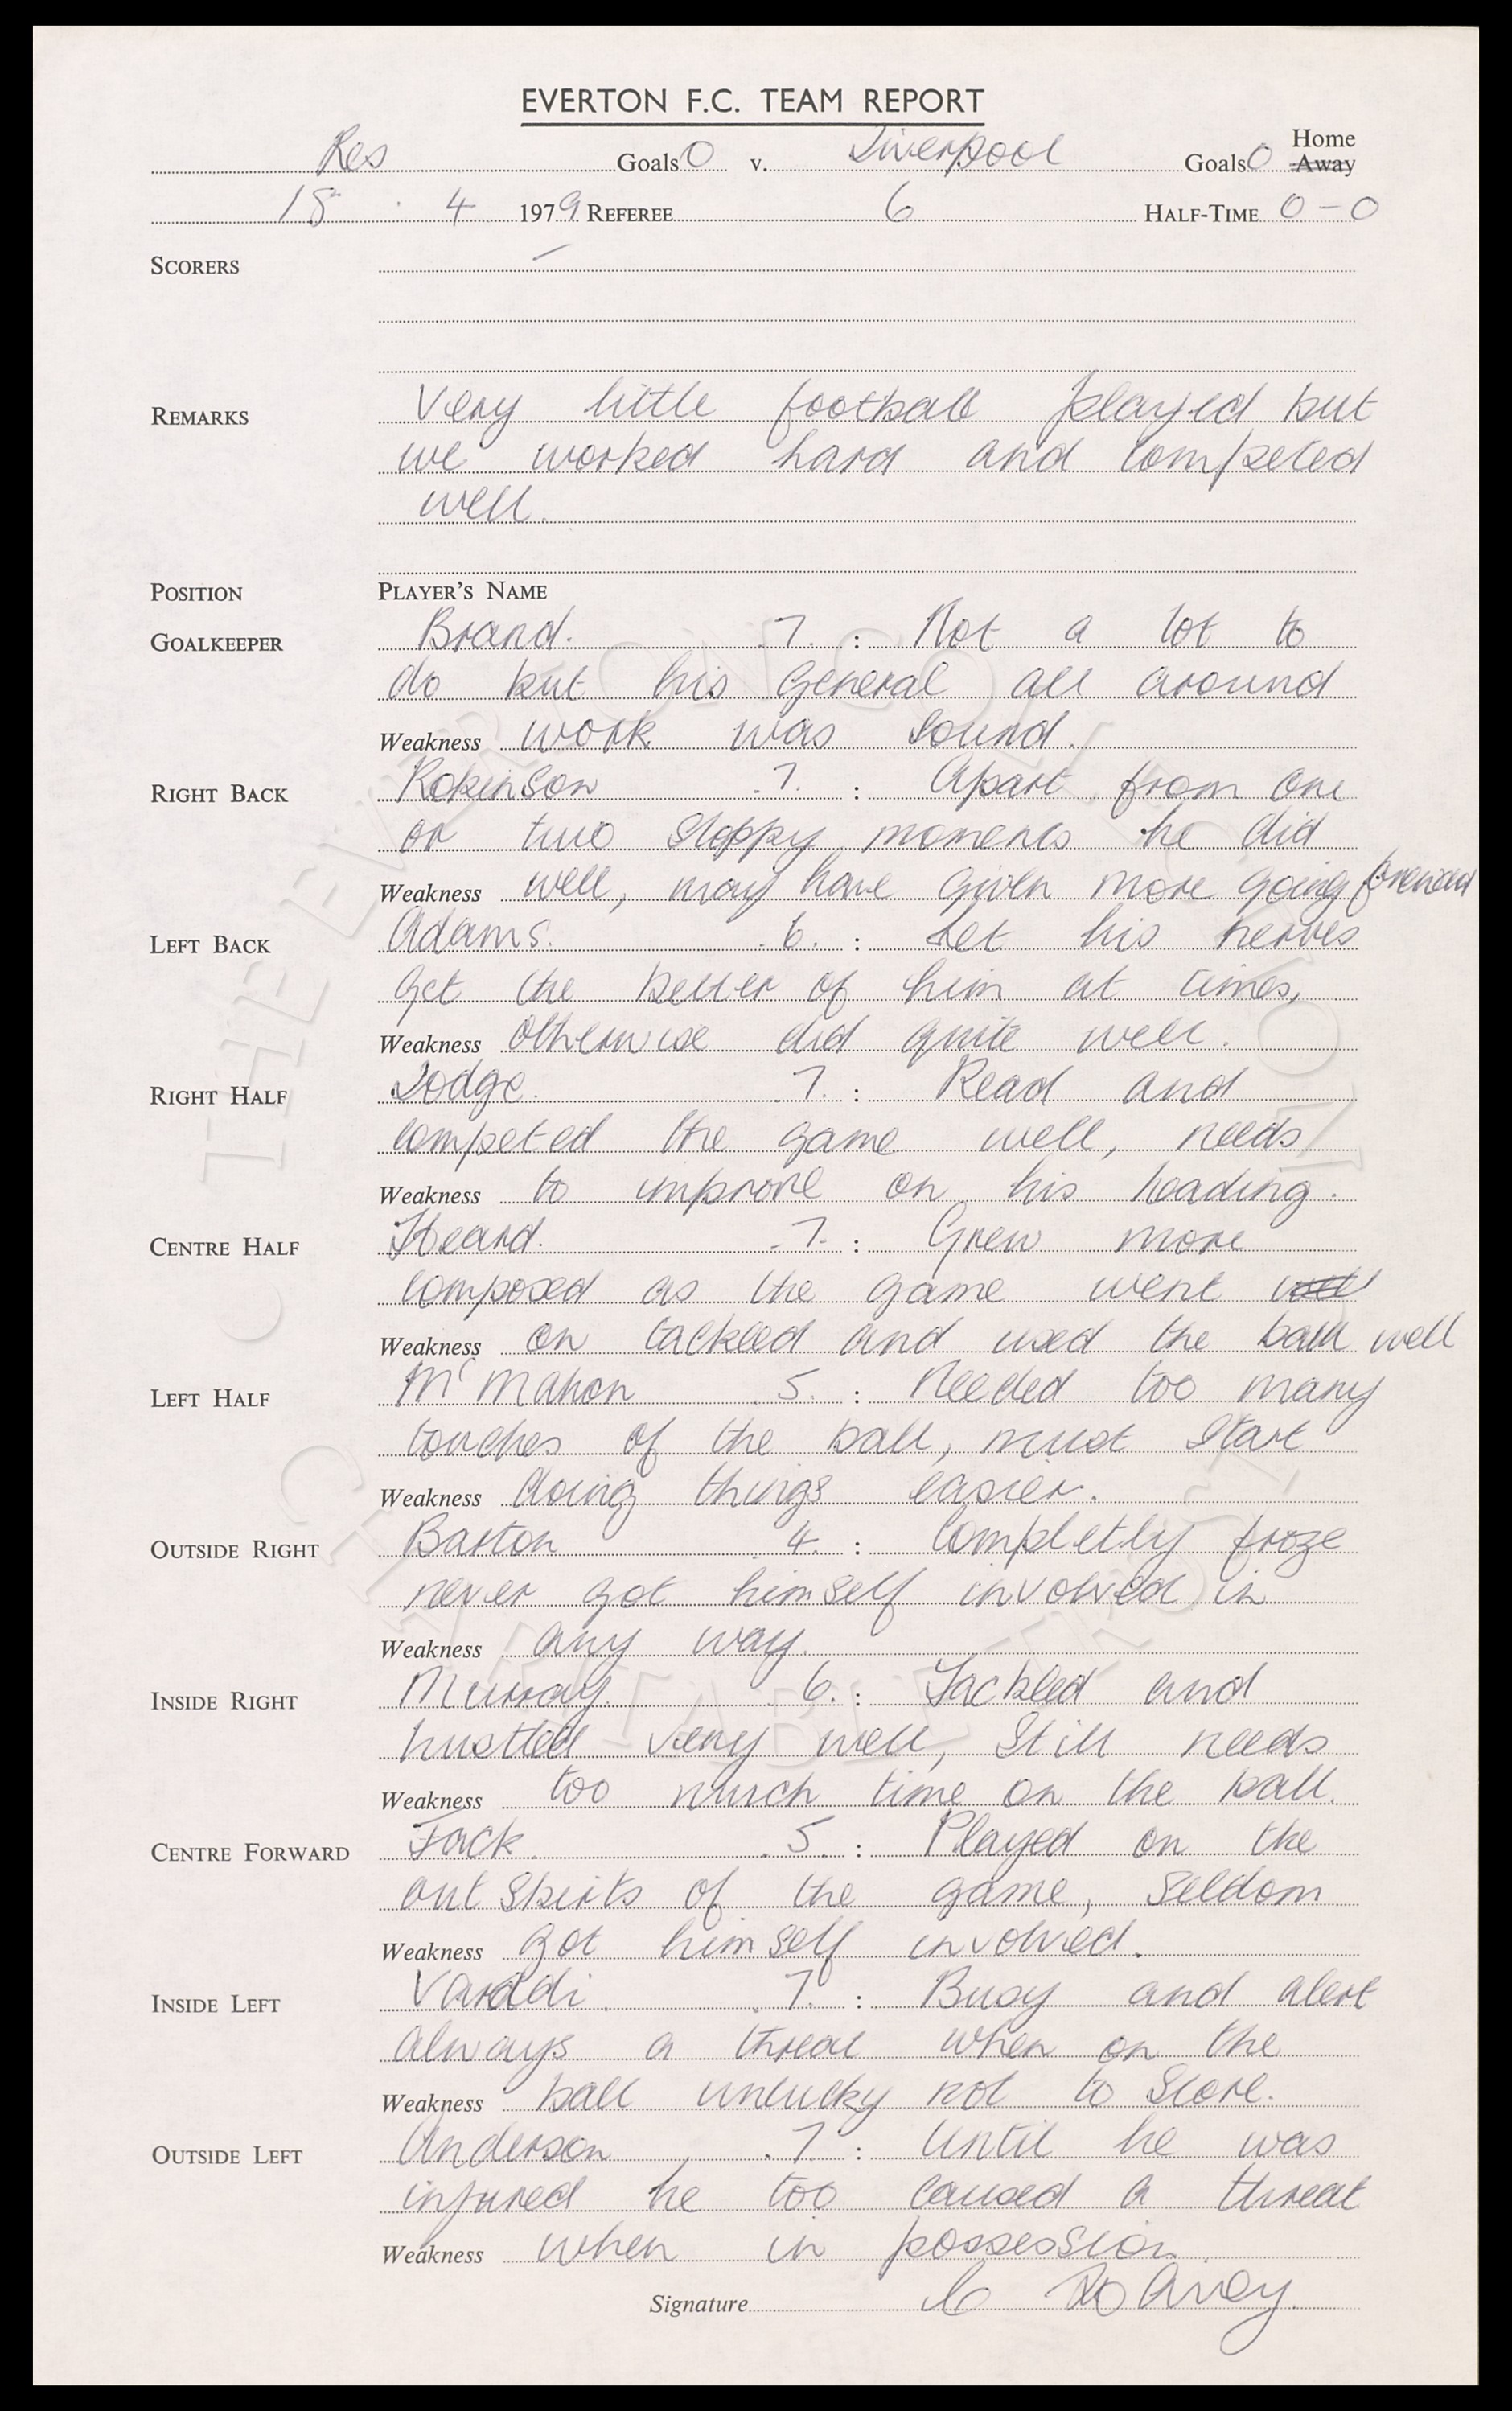 EVERTON F.C. TEAM REPORT
Res Goals 0 v. Liverpool Goals 0 Home Away
18 . 4 1979 REFEREE 6 HALF-TIME 0-0
SCORERS –
REMARKS Very little football played but
we worked hard and competed
well.
POSITION PLAYER'S NAME
GOALKEEPER Brand. 7. : Not a lot to
do but his general all around
Weakness work was sound.
RIGHT BACK Robinson .7. : Apart from one
or two sloppy moments he did
Weakness well, may have given more going forward
LEFT BACK Adams. .6. : Let his nerves
get the better of him at times,
Weakness otherwise did quite well.
RIGHT HALF Dodge. 7. : Read and
competed the game well, needs
Weakness to improve on his heading.
CENTRE HALF Heard. .7. : Grew more
composed as the game went well
Weakness on tackled and used the ball well
LEFT HALF McMahon 5. : Needed too many
touches of the ball, must start
Weakness doing things easier.
OUTSIDE RIGHT Barton 4. : Completly froze
never got himself involved in
Weakness any way.
INSIDE RIGHT Murray. 6. : Tackled and
hustled very well, still needs
Weakness too much time on the ball.
CENTRE FORWARD Jack. .5. : Played on the
outskirts of the game, seldom
Weakness got himself involved.
INSIDE LEFT Varadi. .7. : Busy and alert
always a threat when on the
Weakness ball unlucky not to score.
OUTSIDE LEFT Anderson .7. : Until he was
injured he too caused a threat
Weakness when in possession.
Signature C
THE EVERTON COLLECTION
CHARITABLE TRUST